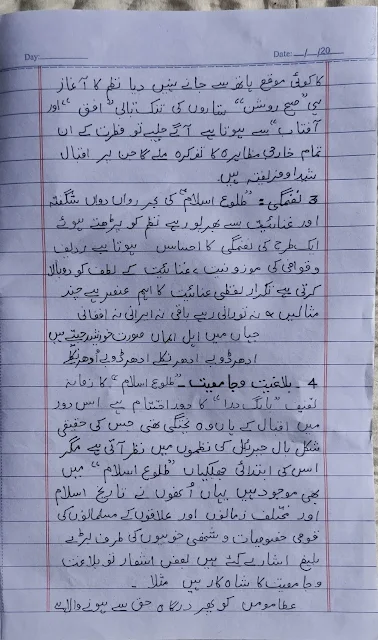 Day:
Date: __/__/20
کا کوئی موقع ہاتھ سے جانے نہیں دیا نظم کا آغاز
ہی "صبح روشن" ستاروں کی تنک تابی "افق" اور
آفتاب" سے ہوتا ہے آگے چلیے تو فطرت کے ان
تمام خارجی مظاہرہ کا تذکرہ ملے گا جن پر اقبال
شیدا و فریفتہ ہیں۔
3 نغمگی: "طلوع اسلام" کی بحر رواں دواں شگفتہ
اور غنائیت سے بھرپور ہے نظم کو پڑھتے ہوئے
ایک طرح کی نغمگی کا احساس ہوتا ہے ردیف
و قوافی کی موزونیت غنائیت کے لطف کو دوبالا
کرتی ہے تکرار لفظی غنائیت کا اہم عنصر ہے چند
مثالیں نہ تورانی رہے باقی نہ ایرانی نہ افغانی
جہاں میں اہل ایماں صورت خورشید جیتے ہیں
ادھر ڈوبے ادھر نکلے ادھر ڈوبے اُدھر نکلے
4 ۔ بلاغت و جامعیت ۔ "طلوع اسلام" کا زمانہ
"بانگ درا" کا دور اختتام ہے اس دور
میں اقبال کے ہاں وہ پختگی تھی جس کی حقیقی
شکل بال جبرئیل کی نظموں میں نظر آتی ہے مگر
اس کی ابتدائی جھلکیاں "طلوع اسلام" میں
بھی موجود ہیں یہاں اُنھوں نے تاریخ اسلام
اور مختلف زمانوں اور علاقوں کے مسلمانوں کی
قومی خصوصیات و شخصی خوبیوں کی طرف بڑے
بلیغ اشارے کئے ہیں بعض اشعار تو بلاغت
و جامعیت کا شاہ کار ہیں مثلاً ۔
عطا مومن کو پھر درگاہ حق سے ہونے والا ہے